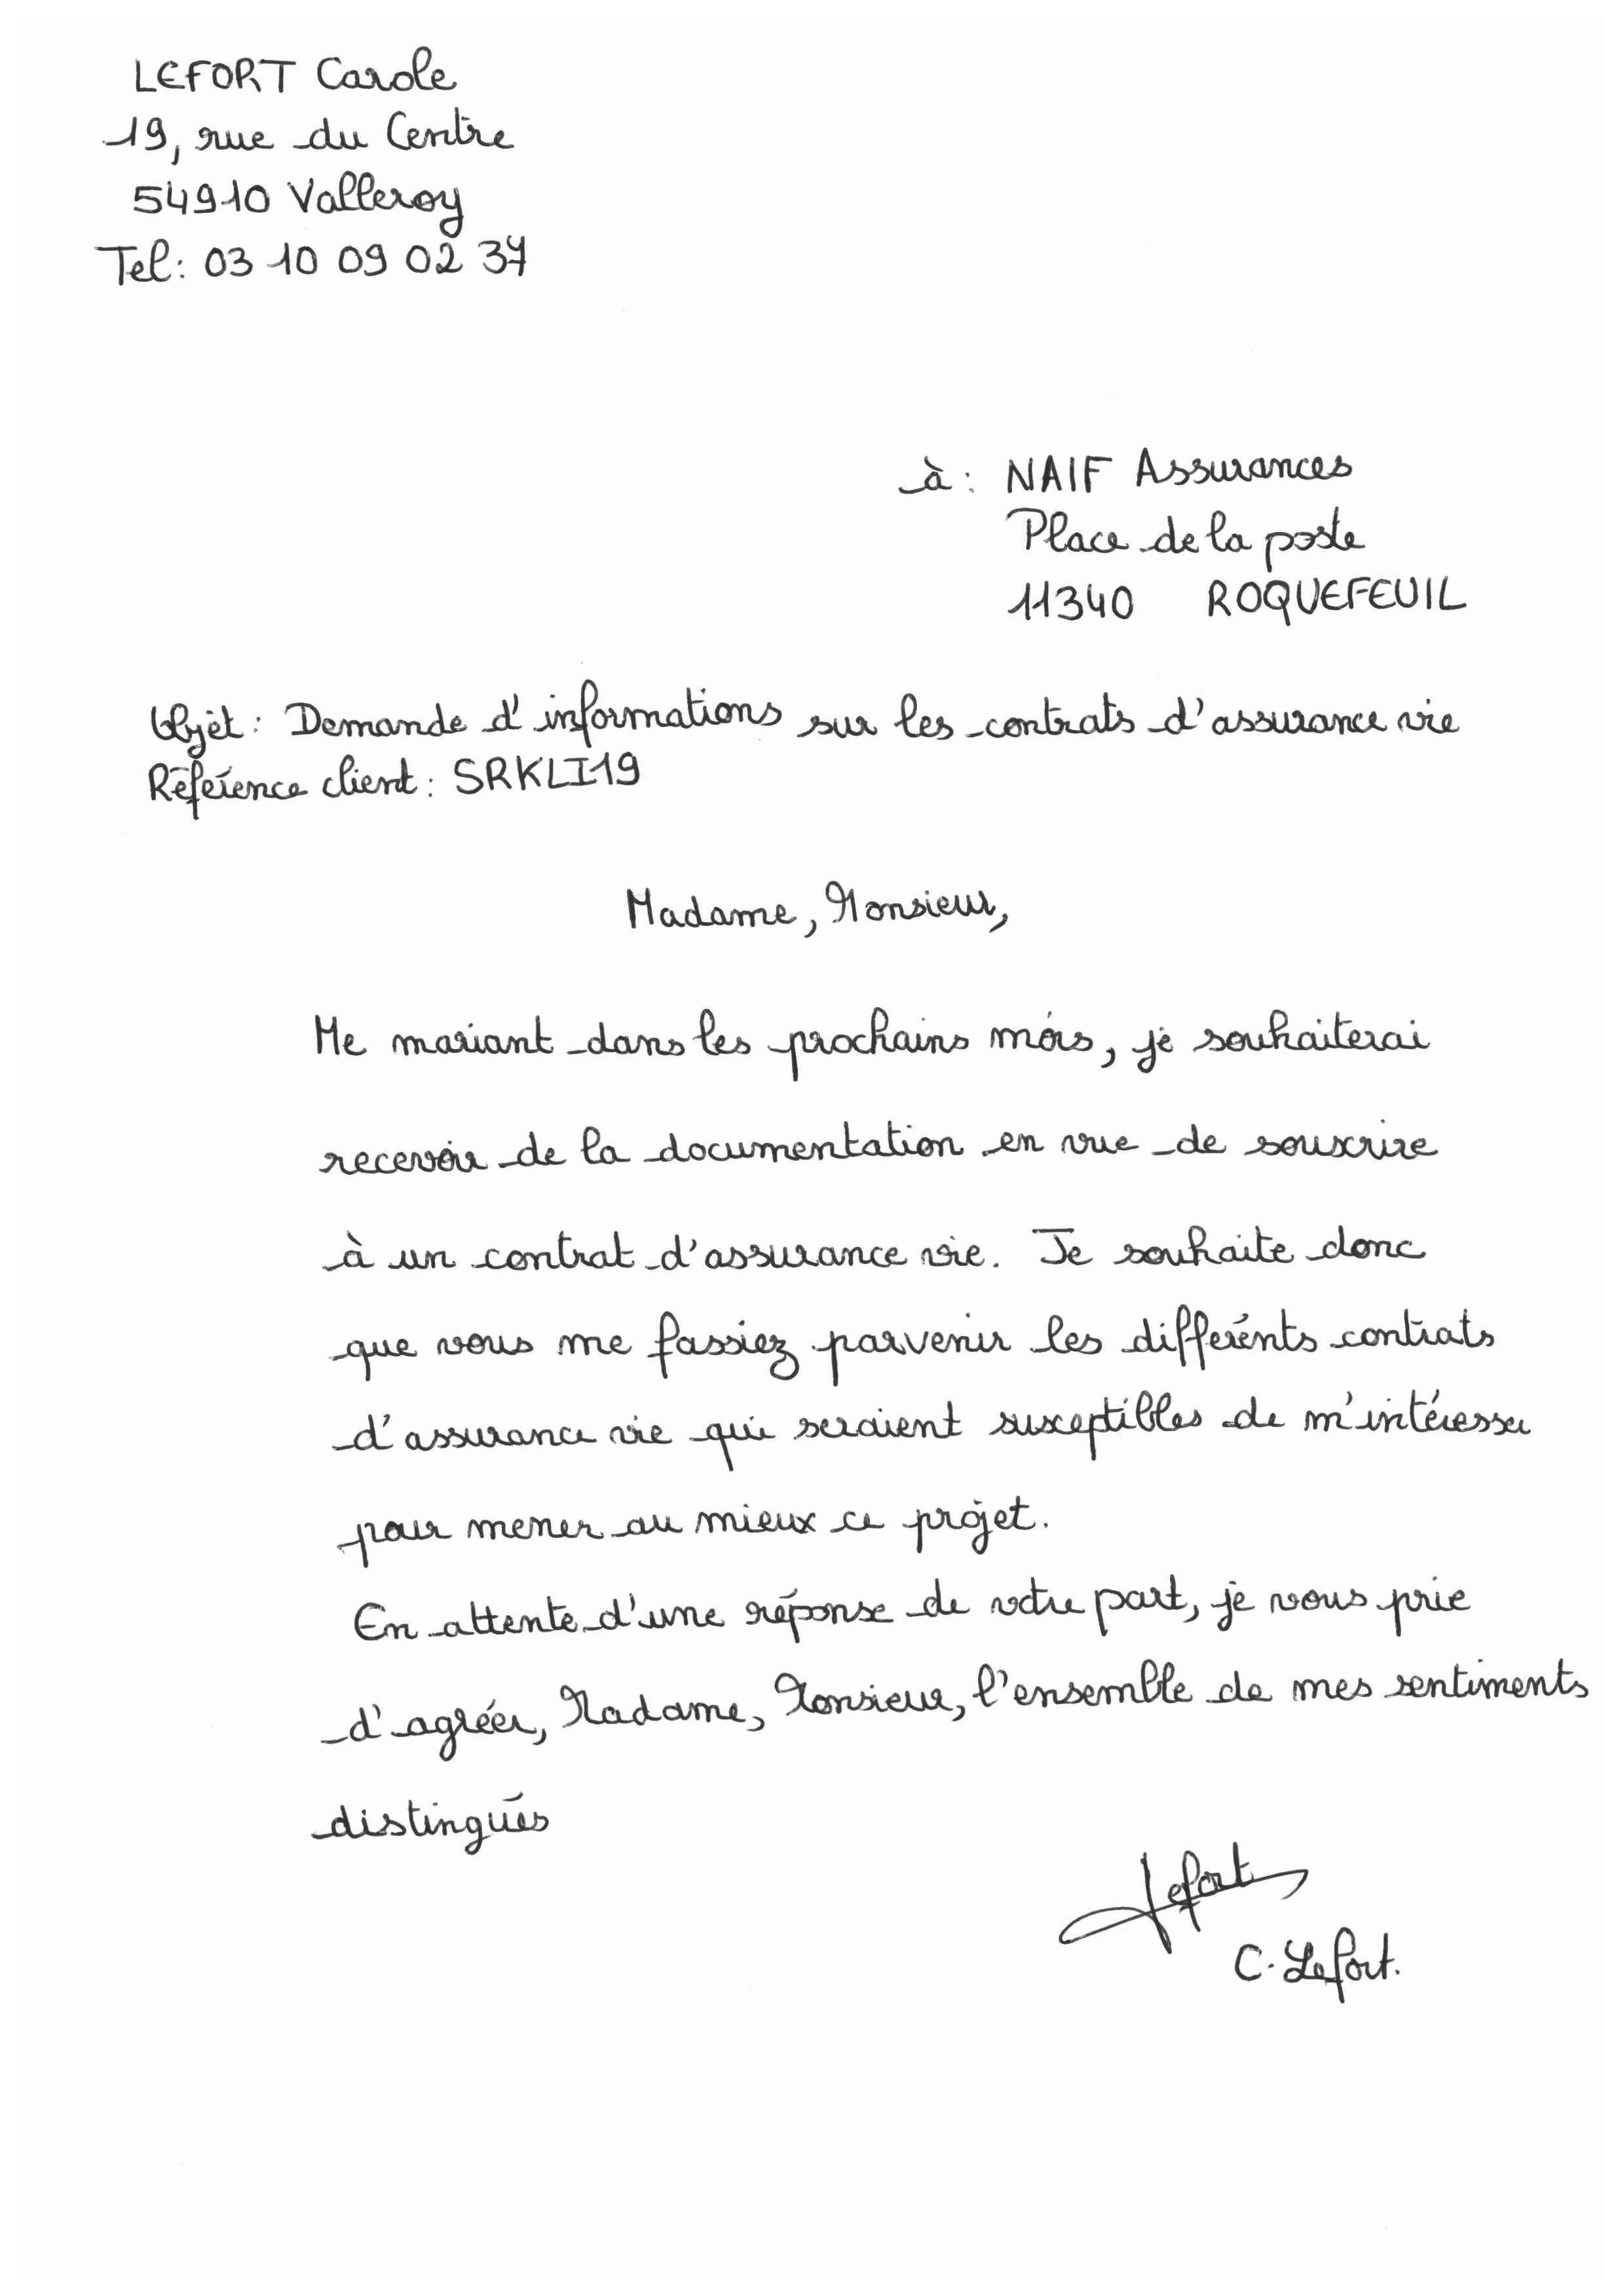 LEFORT Carole
19, rue du Centre
54910 Valleroy
Tel: 03 10 09 02 37
à: NAIF Assurances
Place de la poste
11340 ROQUEFEUIL
Objet: Demande d'informations sur les contrats d'assurance vie
Référence client: SRKLI19
Madame, Monsieur,
Me mariant dans les prochains mois, je souhaiterai
recevoir de la documentation en vue de souscrire
à un contrat d'assurance vie. Je souhaite donc
que vous me fassiez parvenir les différents contrats
d'assurance vie qui seraient susceptibles de m'intéresser
pour mener au mieux ce projet.
En attente d'une réponse de votre part, je vous prie
d'agréer, Madame, Monsieur, l'ensemble de mes sentiments
distingués
Lefort
C. Lefort.